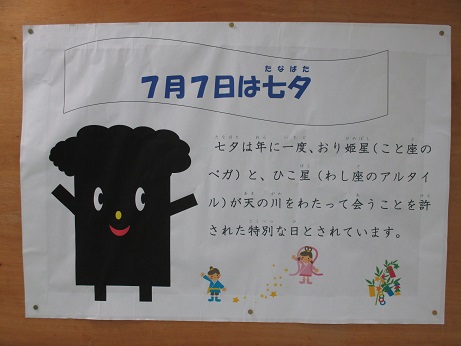 たなばた
7月7日は七夕
七夕は年に一度、おり姫星(こと座の
ベガ)と、ひこ星(わし座のアルタイ
ル)が天の川をわたって会うことを許
された特別な日とされています。